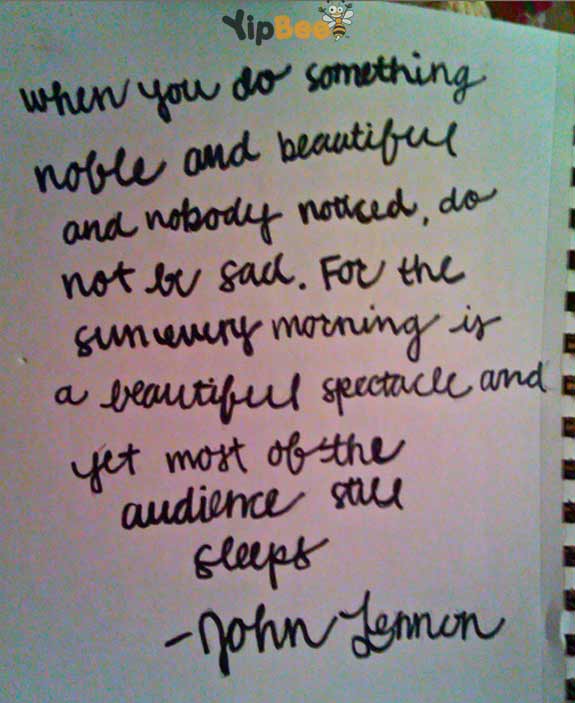 YipBee
when you do something
noble and beautiful
and nobody noticed, do
not be sad. For the
sun every morning is
a beautiful spectacle and
yet most of the
audience still
sleeps
-John Lennon